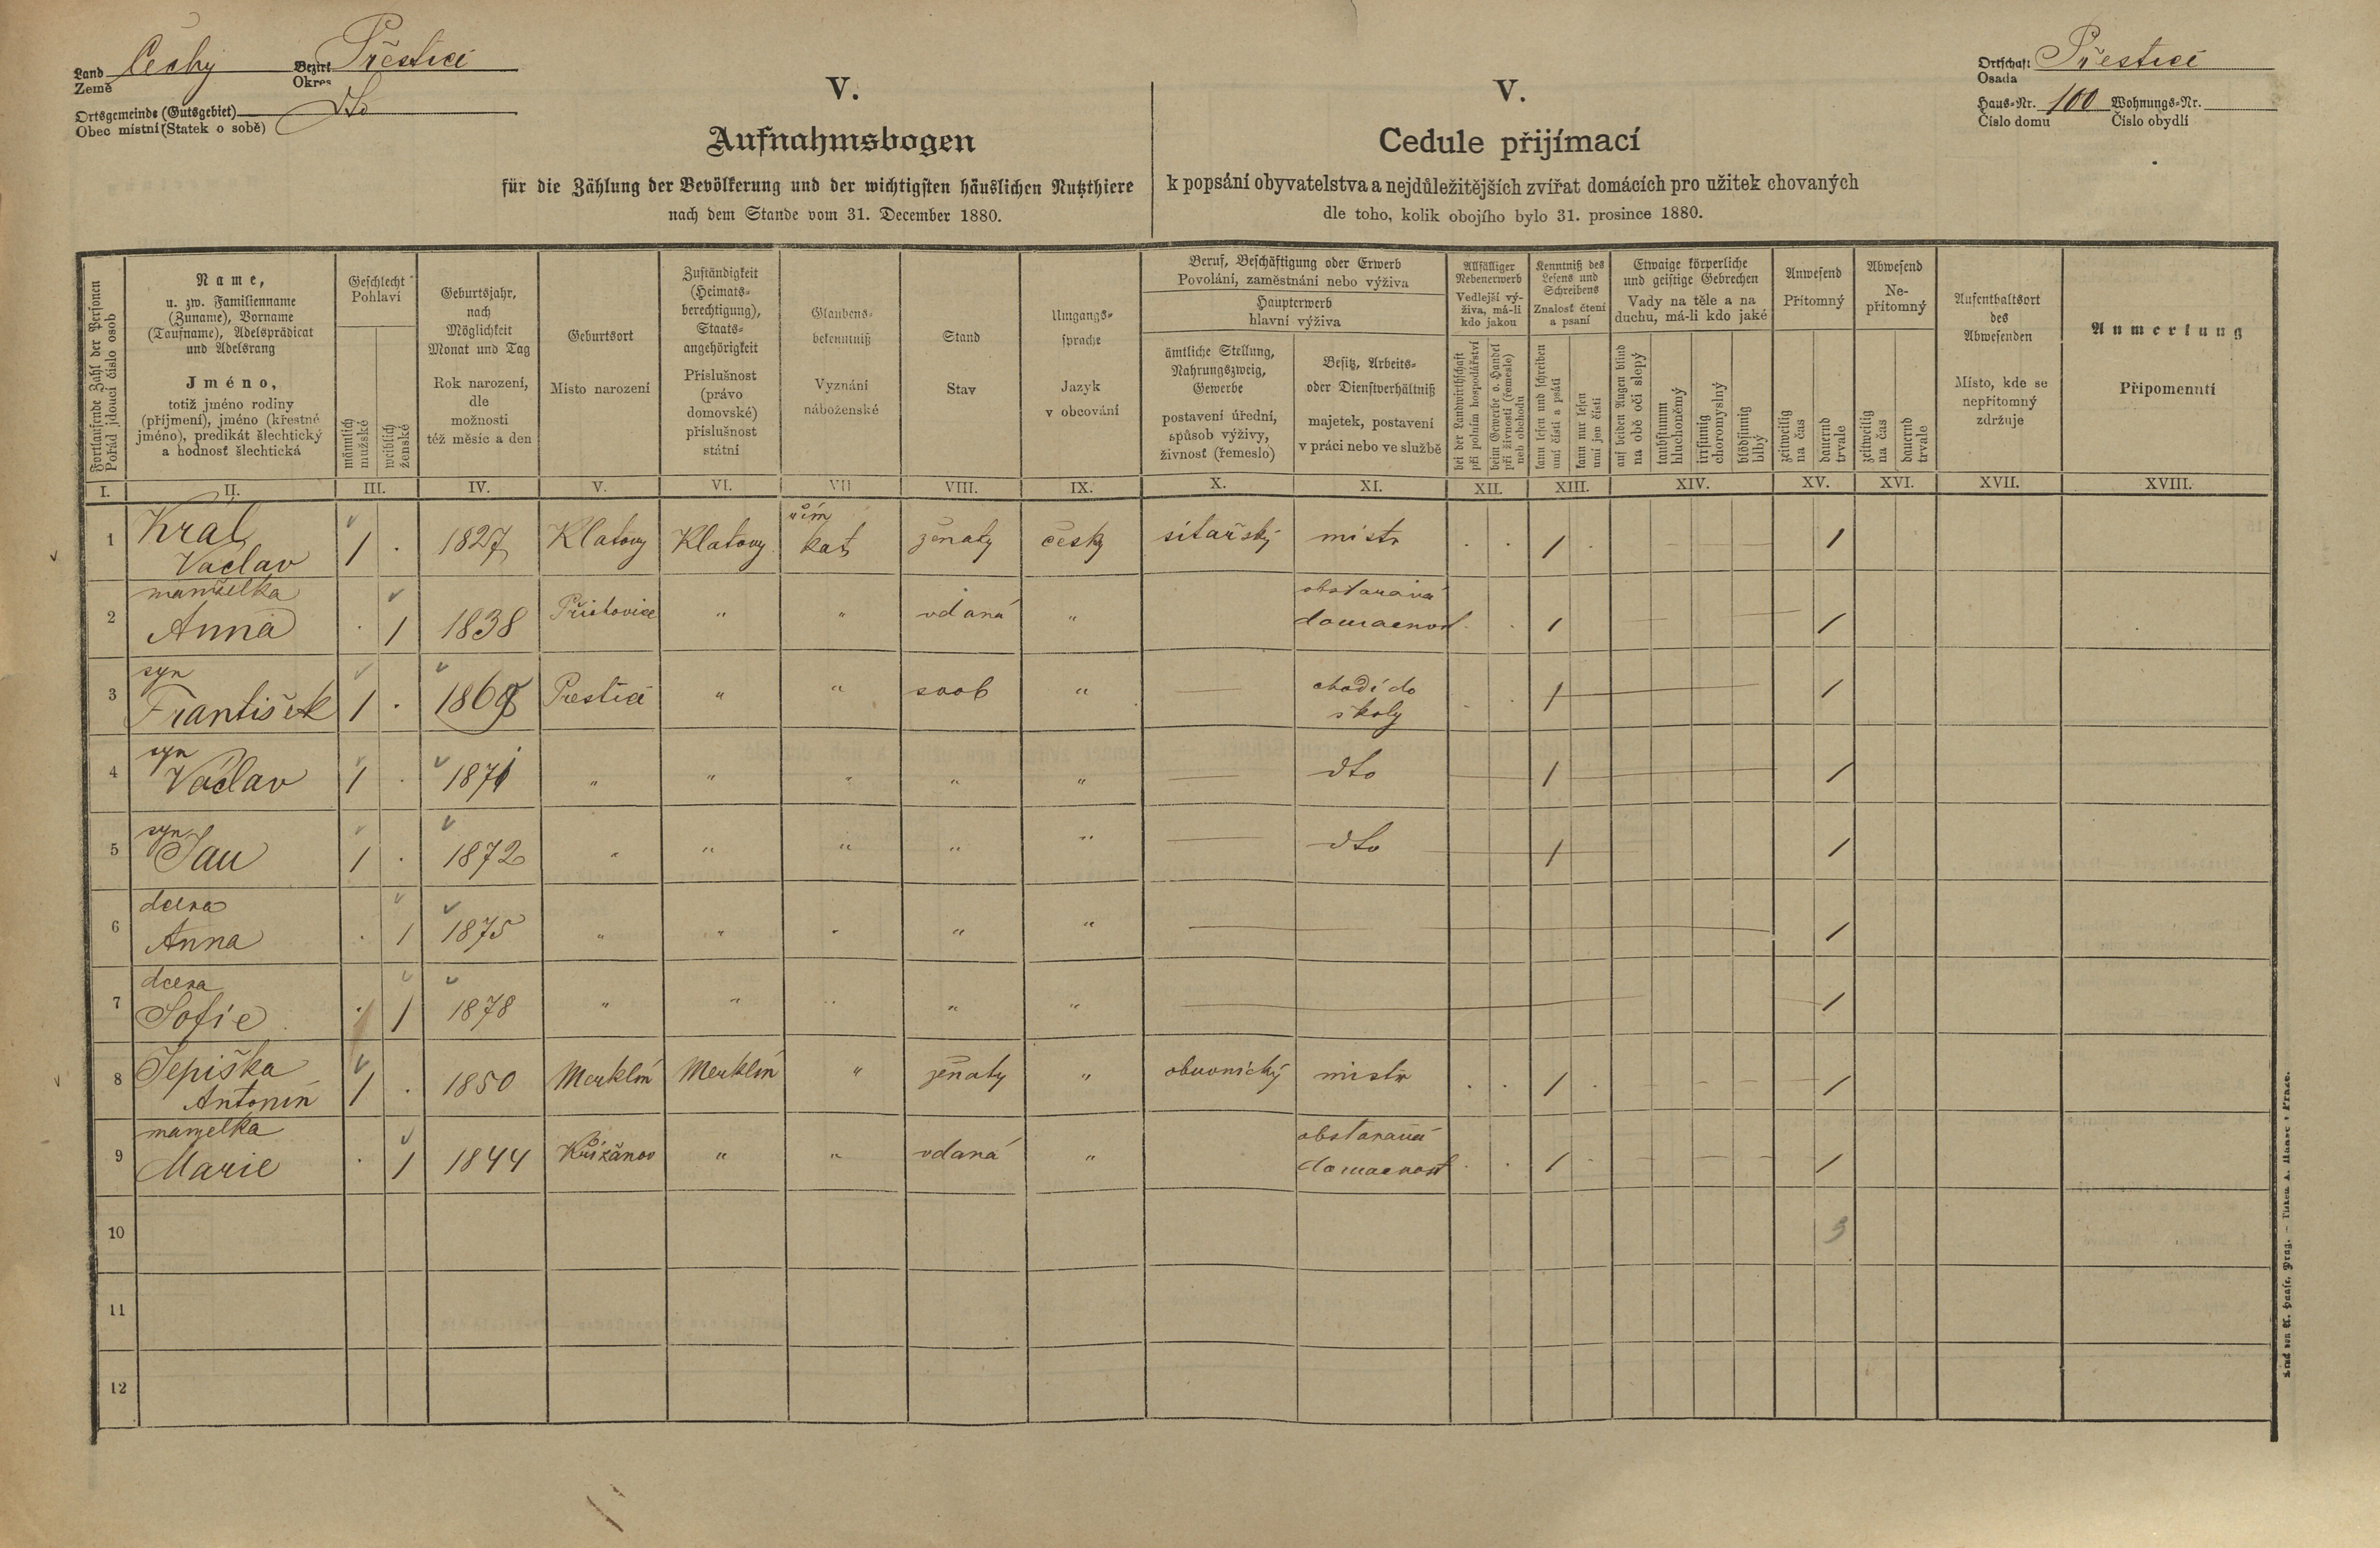 Land Čechy Bezirk Přestice
Země Okres
Ortsgemeinde (Gutsgebiet) dto
Obec místní (Statek o sobě)
Ortschaft Přestice
Osada
Haus-Nr. 100 Wohnungs-Nr.
Číslo domu Číslo obydlí
V.
Aufnahmsbogen
für die Zählung der Bevölkerung und der wichtigsten häuslichen Nutzthiere
nach dem Stande vom 31. December 1880.
V.
Cedule přijímací
k popsání obyvatelstva a nejdůležitějších zvířat domácích pro užitek chovaných
dle toho, kolik obojího bylo 31. prosince 1880.
Fortlaufende Zahl der Personen
Pořád jdoucí číslo osob
Name,
u. zw. Familienname
(Zuname), Vorname
(Taufname), Adelsprädicat
und Adelsrang
Jméno,
totiž jméno rodiny
(příjmení), jméno (křestné
jméno), predikát šlechtický
a hodnosť šlechtická
Geschlecht
Pohlaví
männlich
mužské
weiblich
ženské
Geburtsjahr,
nach
Möglichkeit
Monat und Tag
Rok narození,
dle
možnosti
též měsíc a den
Geburtsort
Místo narození
Zuständigkeit
(Heimats-
berechtigung),
Staats-
angehörigkeit
Příslušnost
(právo
domovské)
příslušnost
státní
Glaubens-
bekenntniß
Vyznání
náboženské
Stand
Stav
Umgangs-
sprache
Jazyk
v obcování
Beruf, Beschäftigung oder Erwerb
Povolání, zaměstnání nebo výživa
Haupterwerb
hlavní výživa
ämtliche Stellung,
Nahrungszweig,
Gewerbe
postavení úřední,
spůsob výživy,
živnosť (řemeslo)
Besitz, Arbeits-
oder Dienstverhältniß
majetek, postavení
v práci nebo ve službě
Allfälliger
Nebenerwerb
Vedlejší vý-
živa, má-li
kdo jakou
bei der Landwirthschaft
při polním hospodářství
beim Gewerbe o. Handel
při živnosti (řemesle)
neb obchodu
Kenntniß des
Lesens und
Schreibens
Znalosť čtení
a psaní
kann lesen und schreiben
umí čísti a psáti
kann nur lesen
umí jen čísti
Etwaige körperliche
und geistige Gebrechen
Vady na těle a na
duchu, má-li kdo jaké
auf beiden Augen blind
na obě oči slepý
taubstumm
hluchoněmý
irrsinnig
choromyslný
blödsinnig
blbý
Anwesend
Přítomný
zeitweilig
na čas
dauernd
trvale
Abwesend
Ne-
přítomný
zeitweilig
na čas
dauernd
trvale
Aufenthaltsort
des
Abwesenden
Místo, kde se
nepřítomný
zdržuje
Anmerkung
Připomenutí
I. II. III. IV. V. VI. VII VIII. IX. X. XI. XII. XIII. XIV. XV. XVI. XVII. XVIII.
1 Král Václav 1 . 1827 Klatovy Klatovy řím kat ženatý česky sitařský mistr . . 1 . 1
manželka
2 Anna . 1 1838 Příchovice " " vdaná " obstarává domacnost . . 1 1
syn
3 František 1 . 1869 Prestice " " svob " chodí do školy . . 1 1
syn
4 Václav 1 . 1871 " " " " " dto 1 1
syn
5 Jan 1 . 1872 " " " " " dto 1 1
dcera
6 Anna . 1 1875 " " " " " 1
dcera
7 Sofie . 1 1878 " " " " " 1
8 Šepiška Antonín 1 . 1850 Merklín Merklín " ženatý " obuvnický mistr . . 1 . 1
manželka
9 Marie . 1 1844 Křižanov " " vdaná " obstarává domacnost . . 1 . 1
10 9
11
12